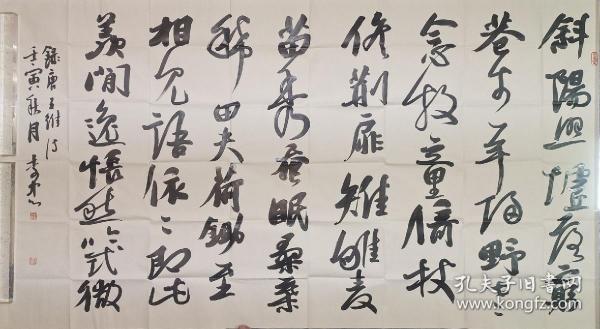 斜陽照墟落窮
巷牛羊歸野老
念牧童倚杖
候荆扉雉雊麦
苗秀蚕眠桑葉
稀田夫荷鋤至
相見語依々即此
羡閒逸悵然吟式微
録唐王維詩
壬寅秋月
孔夫子旧书网
www.kongfz.com